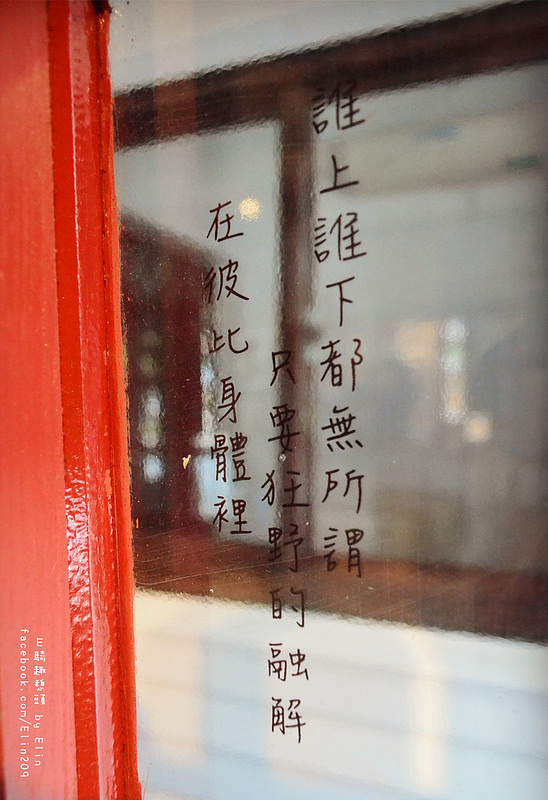 誰上誰下都無所謂
只要狂野的融解
在彼此身體裡
by Elin
facebook.com/Elin209